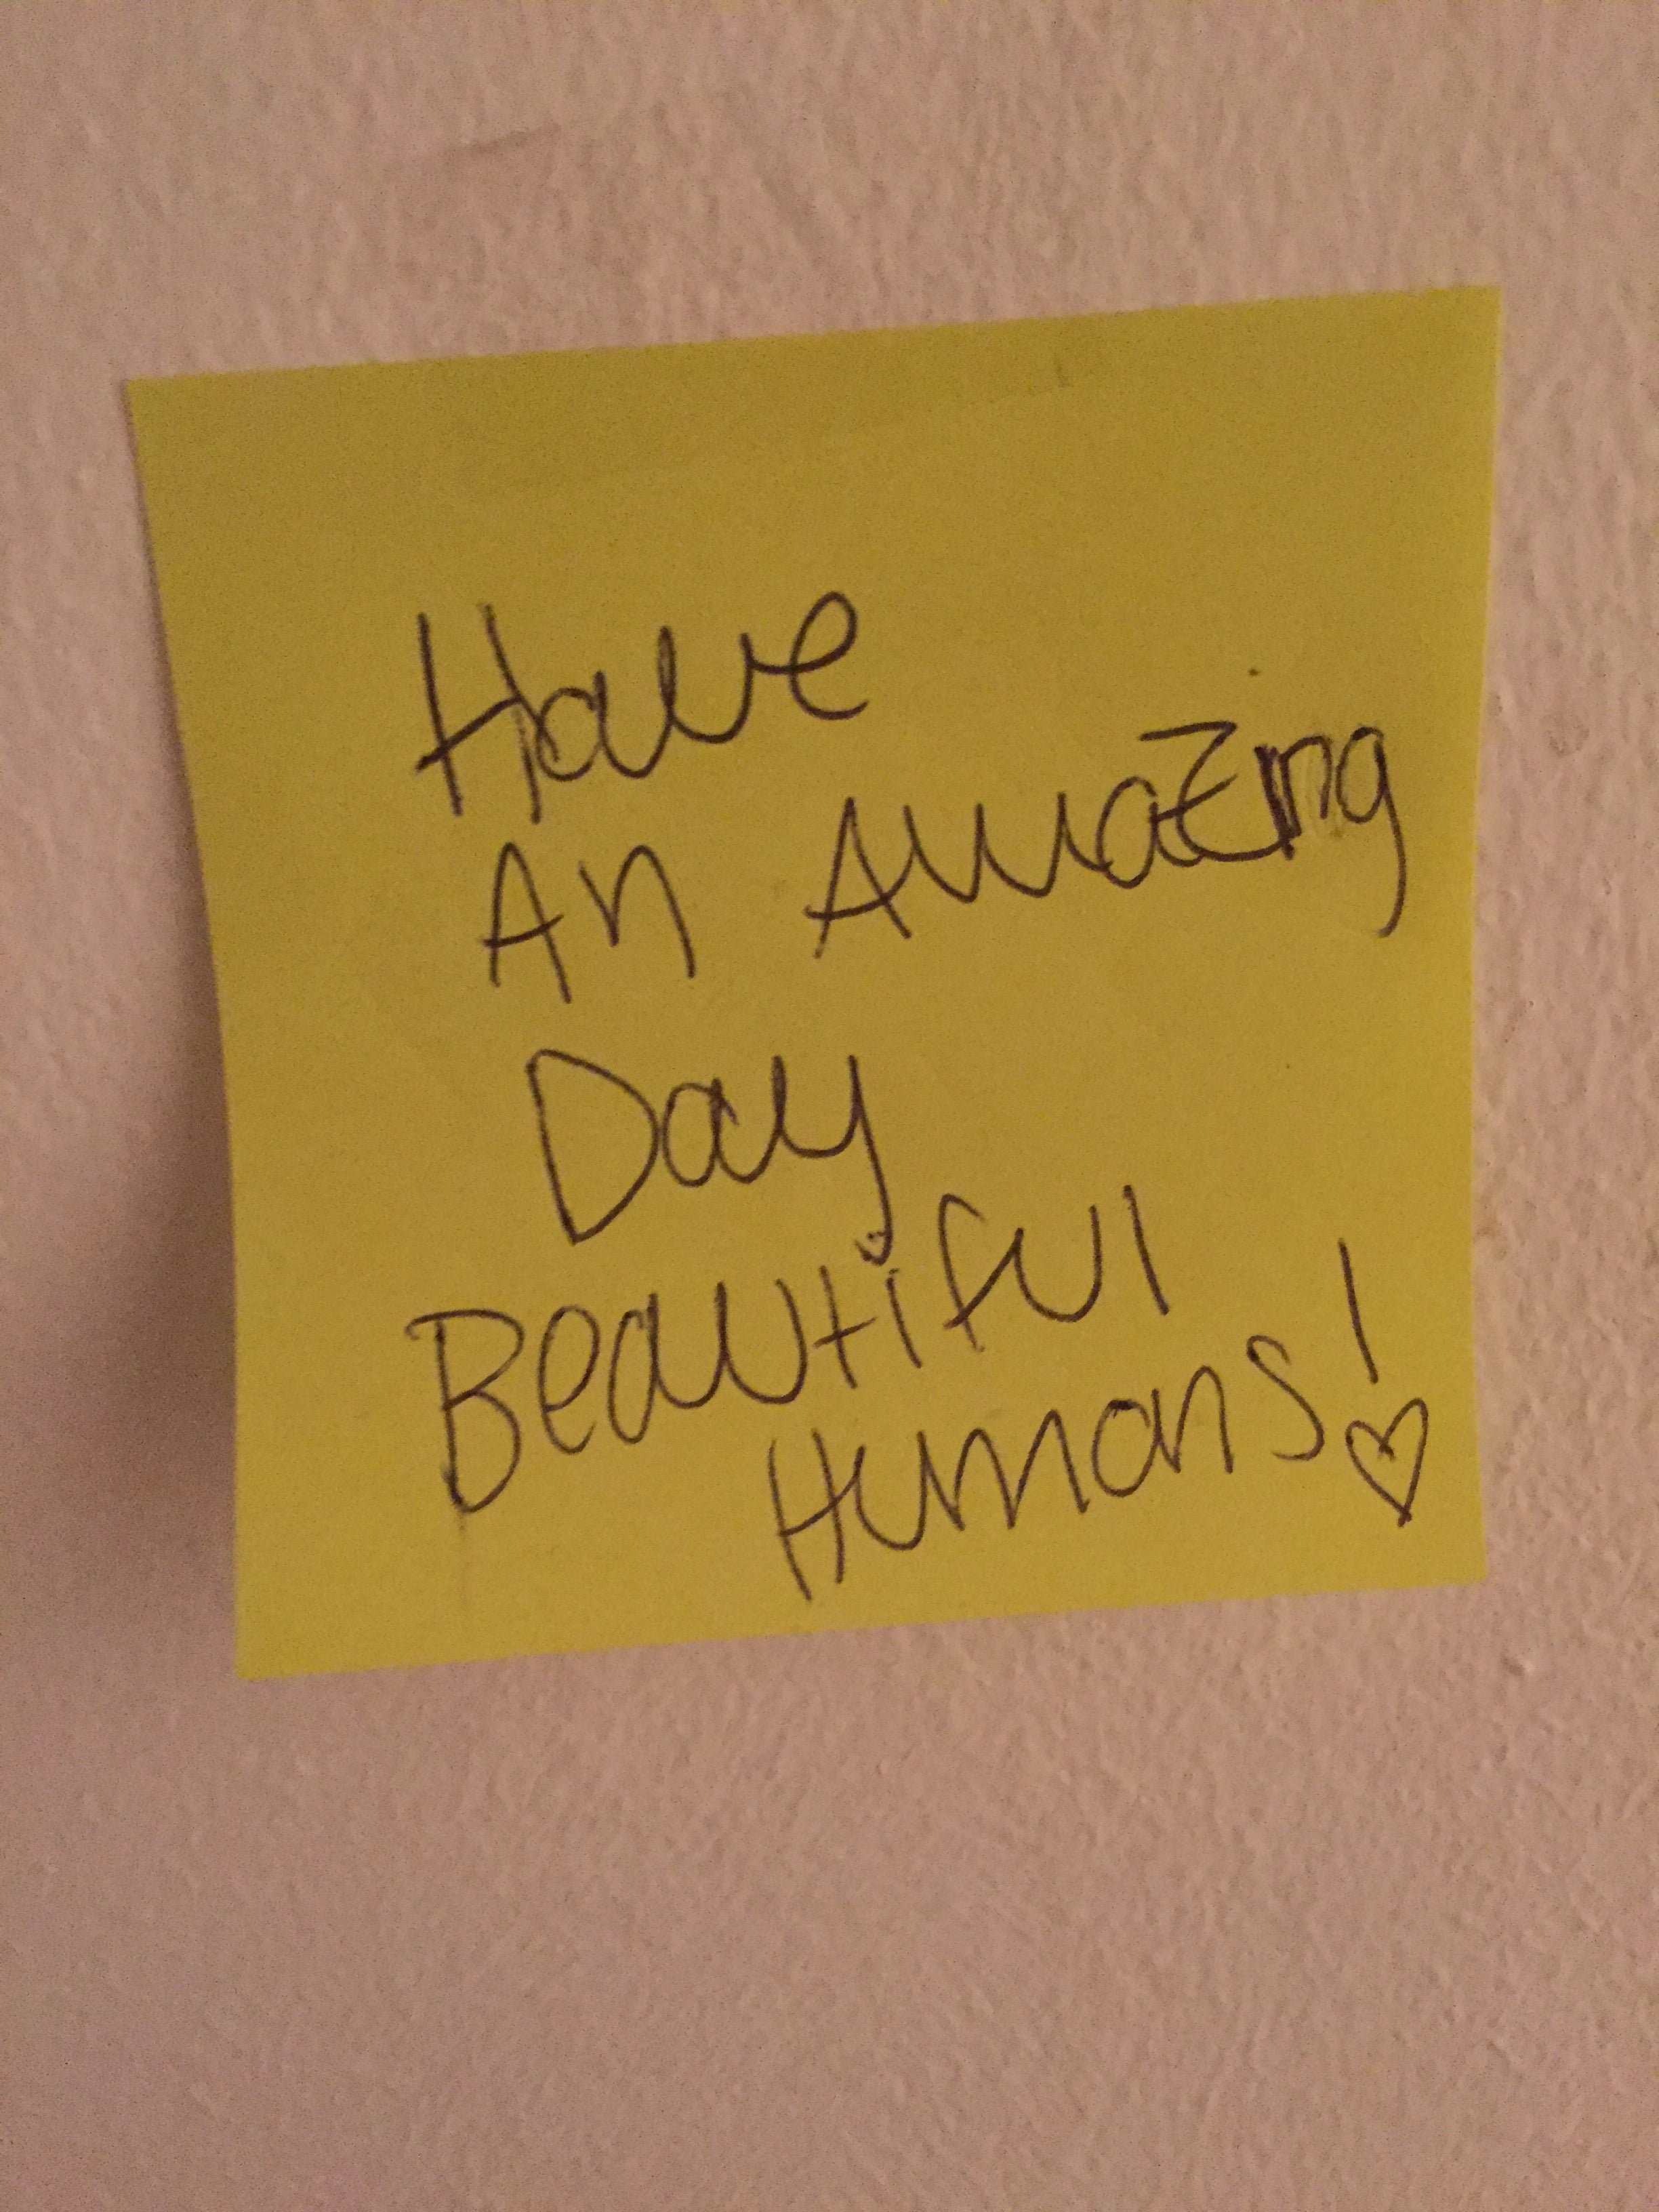 Have
An Amazing
Day
Beautiful
Humans!